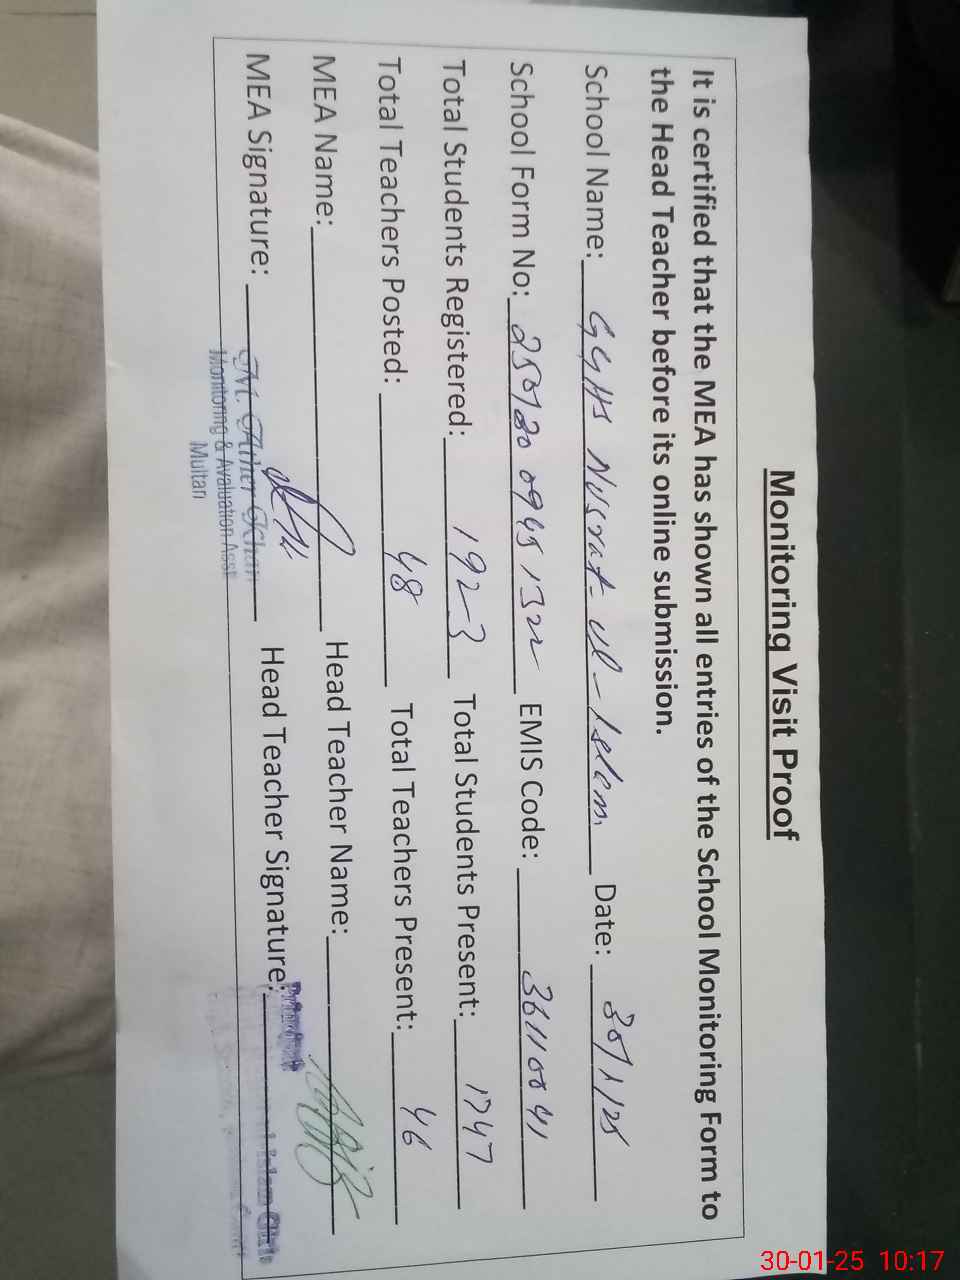 Monitoring Visit Proof
It is certified that the MEA has shown all entries of the School Monitoring Form to
the Head Teacher before its online submission.
School Name: GGHS Nusrat-ul-Islam. Date: 30/1/25
School Form No: EMIS Code: 36110041
Total Students Registered: 1923 Total Students Present: 1747
Total Teachers Posted: 48 Total Teachers Present: 46
MEA Name: Head Teacher Name:
MEA Signature: Head Teacher Signature:
M. Ather Khan
Monitoring & Avaluation Asst
Multan
30-01-25 10:17